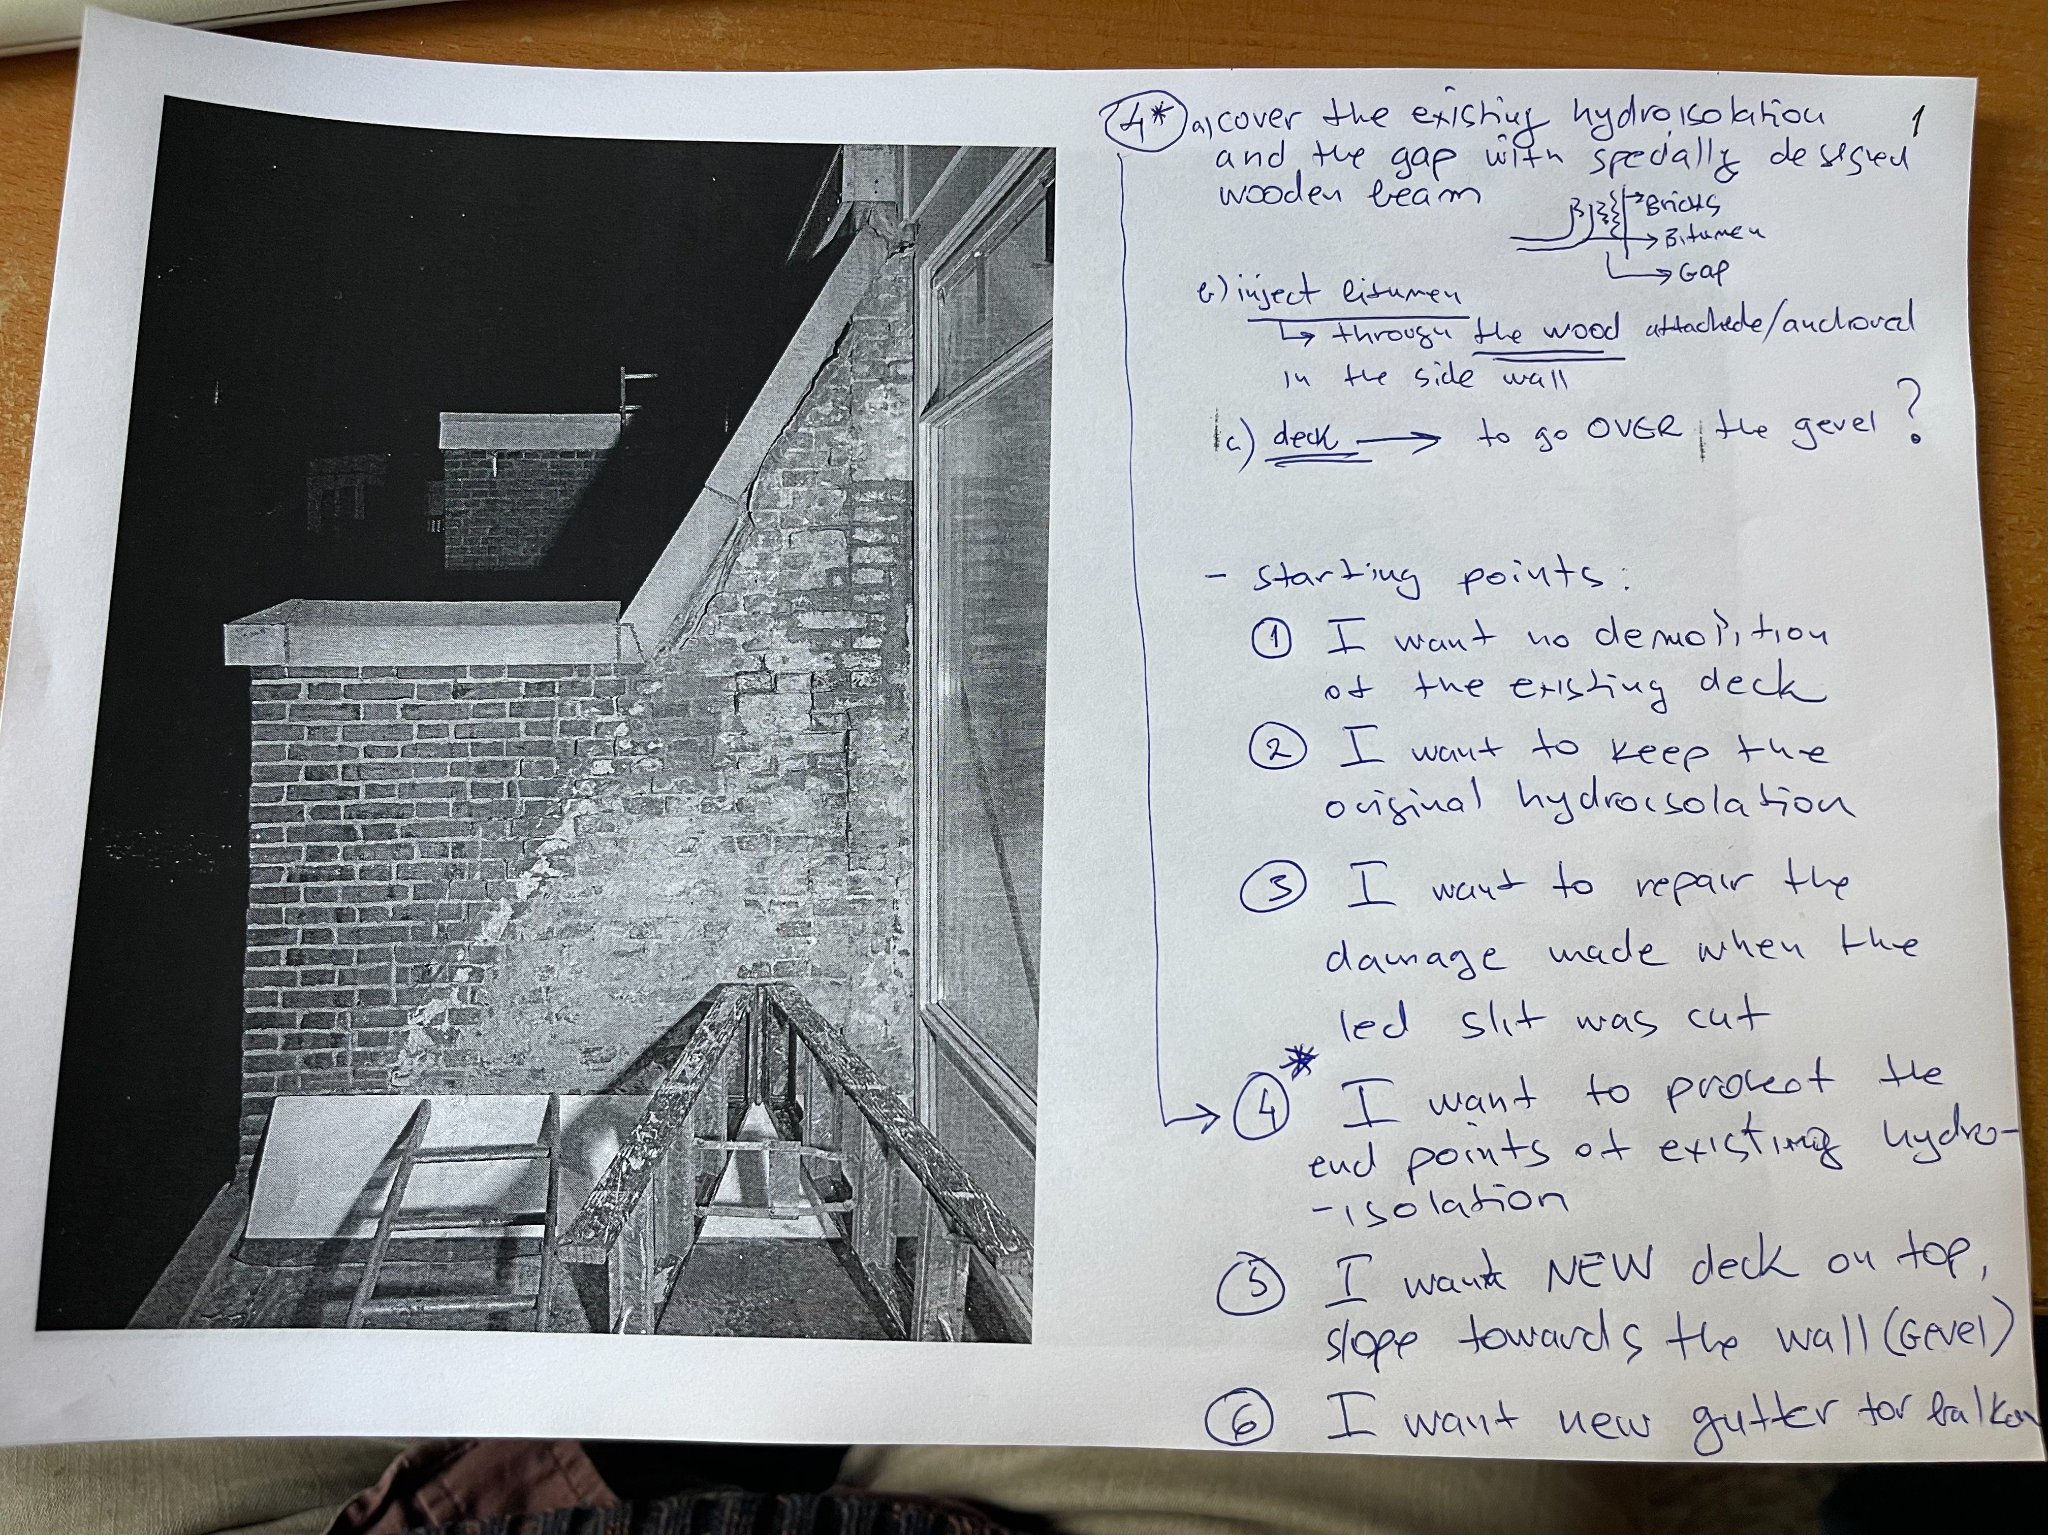 1
4* a) cover the existing hydroisolation
and the gap with specially designed
wooden beam
→ Bricks
→ Bitumen
→ Gap
b) inject bitumen
↳ through the wood attachede/anchored
in the side wall
c) deck → to go OVER the gevel ?
- starting points:
① I want no demolition
of the existing deck
② I want to keep the
original hydroisolation
③ I want to repair the
damage made when the
led slit was cut
④* I want to protect the
end points of existing hydro-
-isolation
⑤ I want NEW deck on top,
slope towards the wall (Gevel)
⑥ I want new gutter for balkon